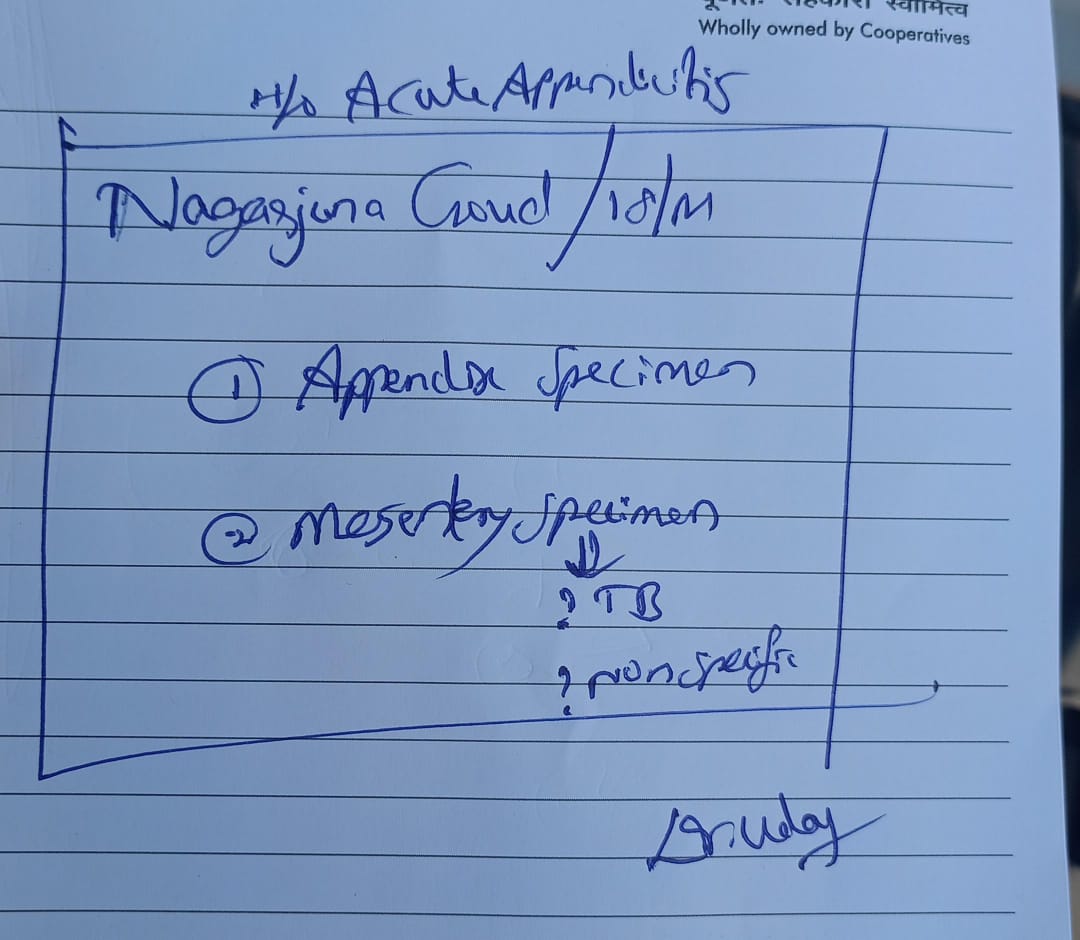 स्वामित्व
Wholly owned by Cooperatives
H/o Acute Appendicitis
Nagarjuna Goud / 18/M
① Appendix Specimen
② Mesentery Specimen
⇓
? TB
? non specific
Dr. Uday